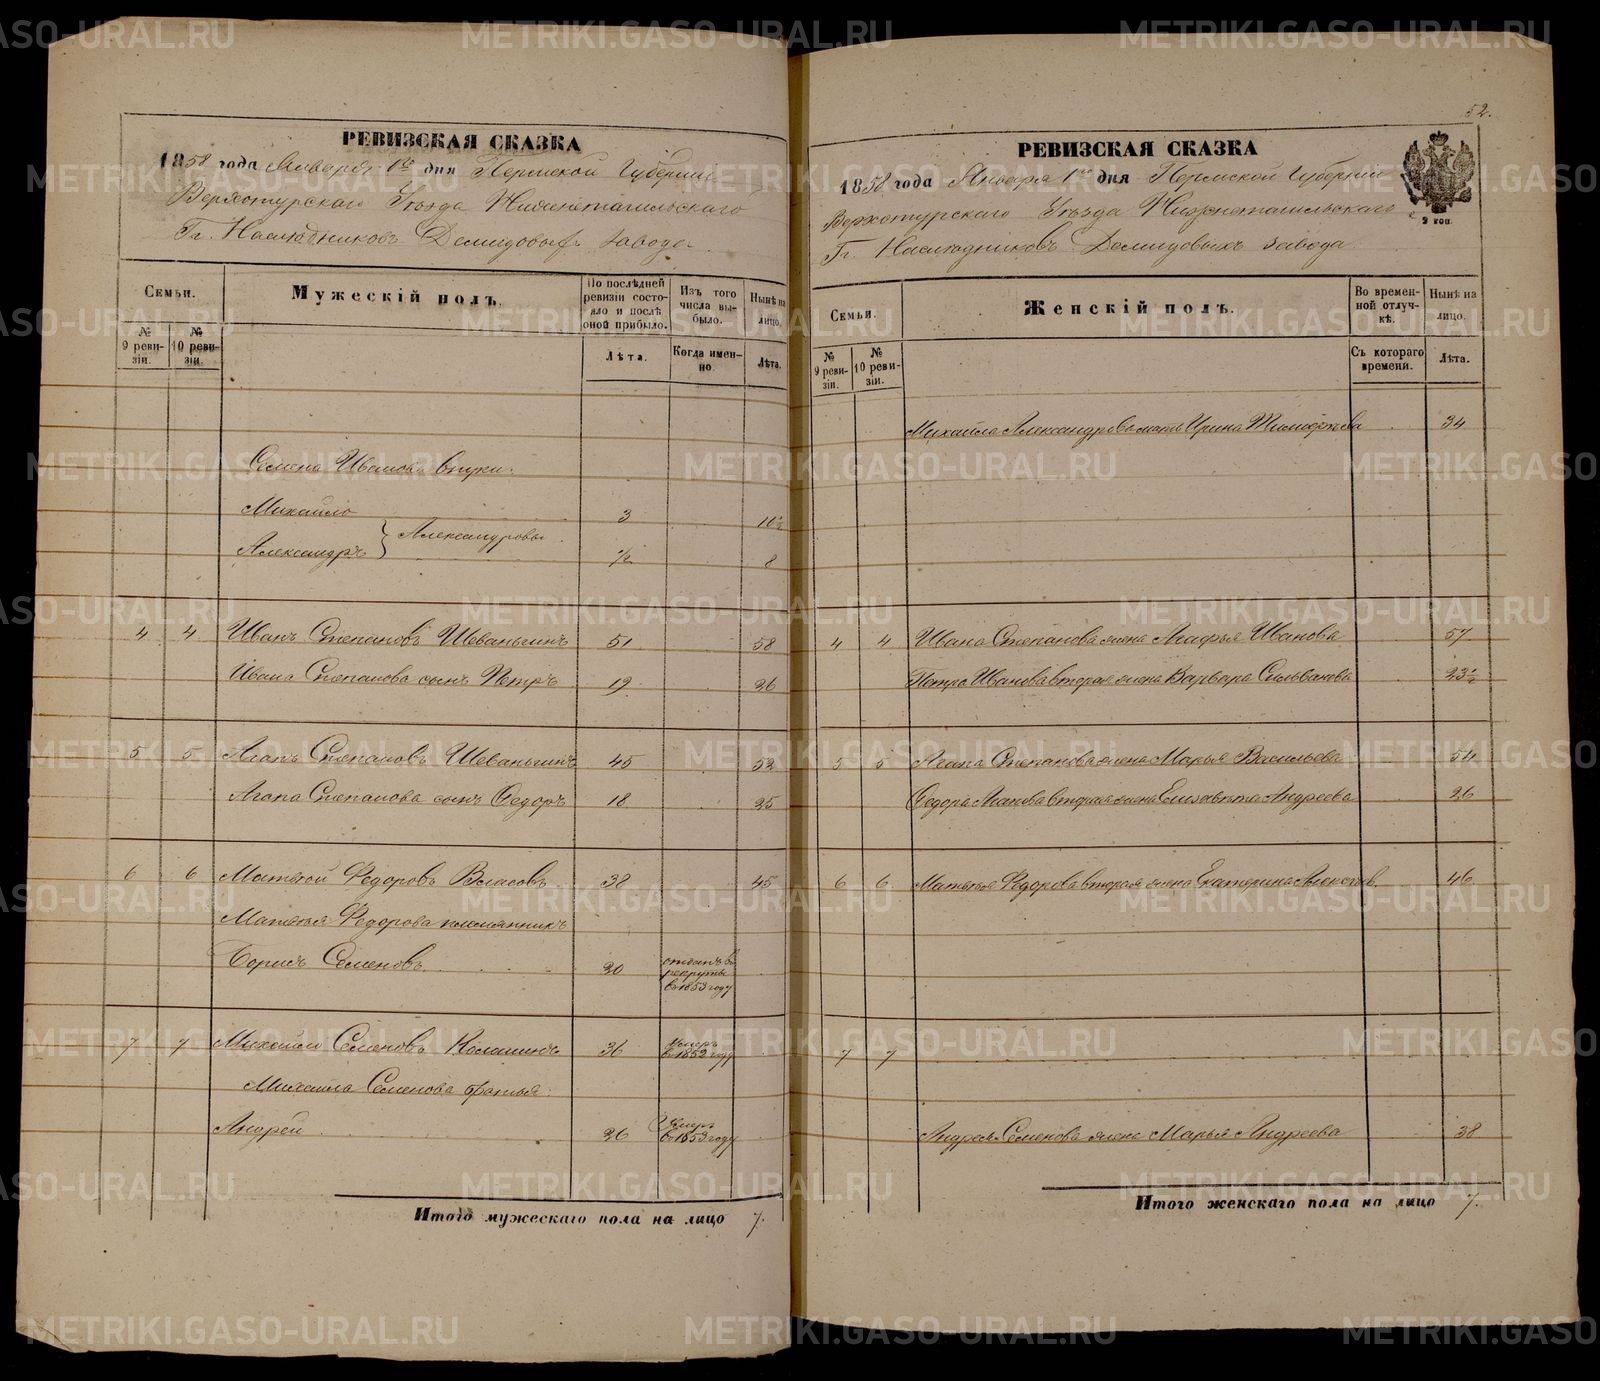 52.
РЕВИЗСКАЯ СКАЗКА
1858 года Января 1го дня Пермской Губернии
Верхотурскаго Уѣзда Нижнетагильскаго
Гг. Наслѣдниковъ Демидовыхъ завода
Семьи.
Мужескій полъ.
По послѣдней ревизіи состояло и послѣ оной прибыло.
Изъ того числа выбыло.
Нынѣ на лицо.
№ 9 ревизіи.
№ 10 ревизіи.
Лѣта.
Когда именно.
Лѣта.
Семена Иванова внуки:
Михайло 3 10½
Александръ } Александровы ½ 8
4 4 Иванъ Степановъ Шеваньгинъ 51 58
Ивана Степанова сынъ Петръ 19 26
5 5 Агапъ Степановъ Шеваньгинъ 45 52
Агапа Степанова сынъ Федоръ 18 25
6 6 Матвѣй Федоровъ Власовъ 38 45
Матвѣя Федорова племянникъ
Борисъ Семеновъ 20 отданъ въ рекруты въ 1853 году
7 7 Михайло Семеновъ Калашинъ 36 умеръ въ 1852 году
Михаила Семенова братья:
Андрей 26 Умеръ въ 1853 году
Итого мужескаго пола на лицо 7.
РЕВИЗСКАЯ СКАЗКА
1858 года Января 1го дня Пермской Губернии
Верхотурскаго Уѣзда Нижнетагильскаго
Гг. Наслѣдниковъ Демидовыхъ завода
2 коп.
Семьи.
Женскій полъ.
Во временной отлучкѣ.
Нынѣ на лицо.
№ 9 ревизіи.
№ 10 ревизіи.
Съ котораго времени.
Лѣта.
Михайла Александрова мать Ирина Тимофѣева 34
4 4 Ивана Степанова жена Агафья Иванова 57
Петра Иванова вторая жена Варвара Сильванова 23½
5 5 Агапа Степанова жена Марья Васильева 54
Федора Агапова вторая жена Елизавета Андреева 26
6 6 Матвѣя Федорова вторая жена Екатерина Алексѣев. 46
7 7
Андрея Семенова жена Марья Андреева 38
Итого женскаго пола на лицо 7.
METRIKI.GASO-URAL.RU